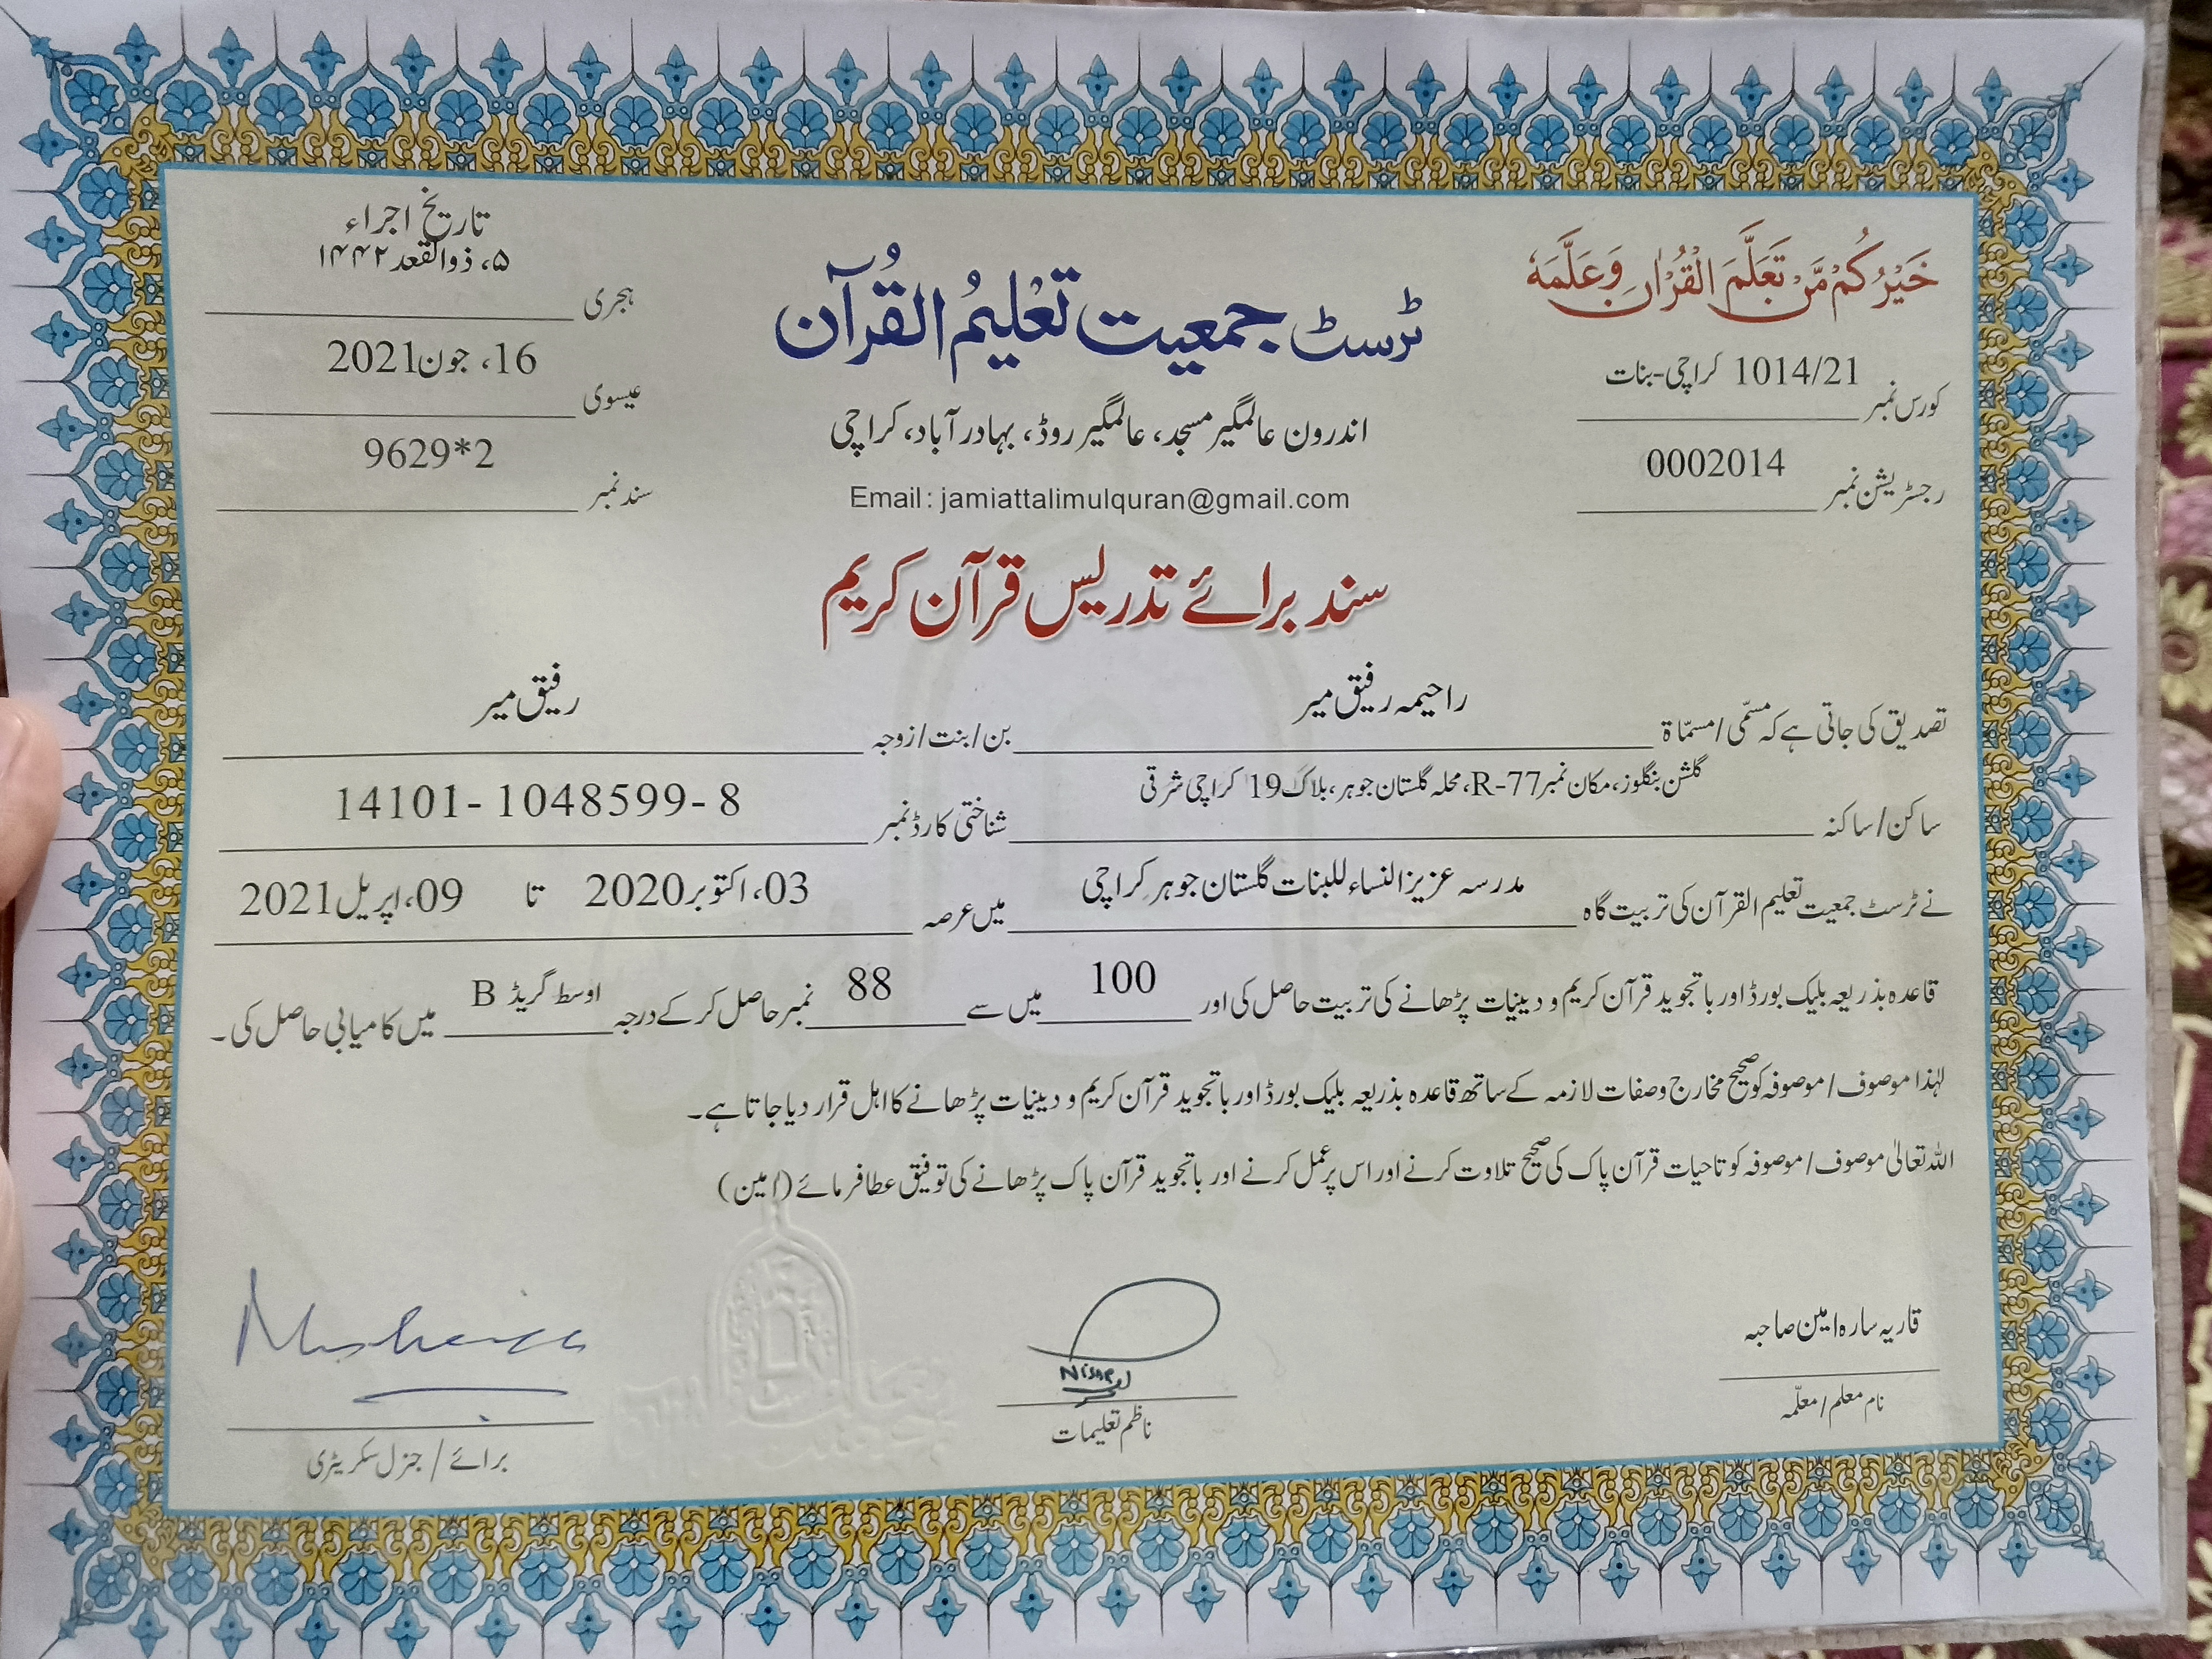 خَیْرُکُمْ مَّنْ تَعَلَّمَ الْقُرْاٰنَ وَعَلَّمَہٗ
کورس نمبر 1014/21 کراچی-بنات
رجسٹریشن نمبر 0002014
ٹرسٹ جمعیت تَعْلِیْمُ الْقُرآن
اندرون عالمگیر مسجد، عالمگیر روڈ، بہادر آباد، کراچی
Email : jamiattalimulquran@gmail.com
تاریخ اجراء
۵، ذوالقعد ۱۴۴۲ ہجری
16، جون 2021 عیسوی
سند نمبر 9629*2
سند برائے تدریس قرآن کریم
تصدیق کی جاتی ہے کہ مسمّی/مسمّاۃ راحیمہ رفیق میر بن/بنت/زوجہ رفیق میر
ساکن/ساکنہ گلشن بنگلوز، مکان نمبر R-77، محلہ گلستان جوہر، بلاک 19 کراچی شرقی شناختی کارڈ نمبر 14101-1048599-8
نے ٹرسٹ جمعیت تعلیم القرآن کی تربیت گاہ مدرسہ عزیز النساء للبنات گلستان جوہر کراچی میں عرصہ 03، اکتوبر 2020 تا 09، اپریل 2021
قاعدہ بذریعہ بلیک بورڈ اور باتجوید قرآن کریم و دینیات پڑھانے کی تربیت حاصل کی اور 100 میں سے 88 نمبر حاصل کر کے درجہ اوسط گریڈ B میں کامیابی حاصل کی۔
لہٰذا موصوف/موصوفہ کو صحیح مخارج وصفات لازمہ کے ساتھ قاعدہ بذریعہ بلیک بورڈ اور باتجوید قرآن کریم و دینیات پڑھانے کا اہل قرار دیا جاتا ہے۔
اللہ تعالیٰ موصوف/موصوفہ کو تاحیات قرآن پاک کی صحیح تلاوت کرنے اور اس پر عمل کرنے اور باتجوید قرآن پاک پڑھانے کی توفیق عطا فرمائے (امین)
قاریہ سارہ امین صاحبہ
نام معلم/معلّمہ
Nisar
ناظم تعلیمات
برائے / جنرل سکریٹری